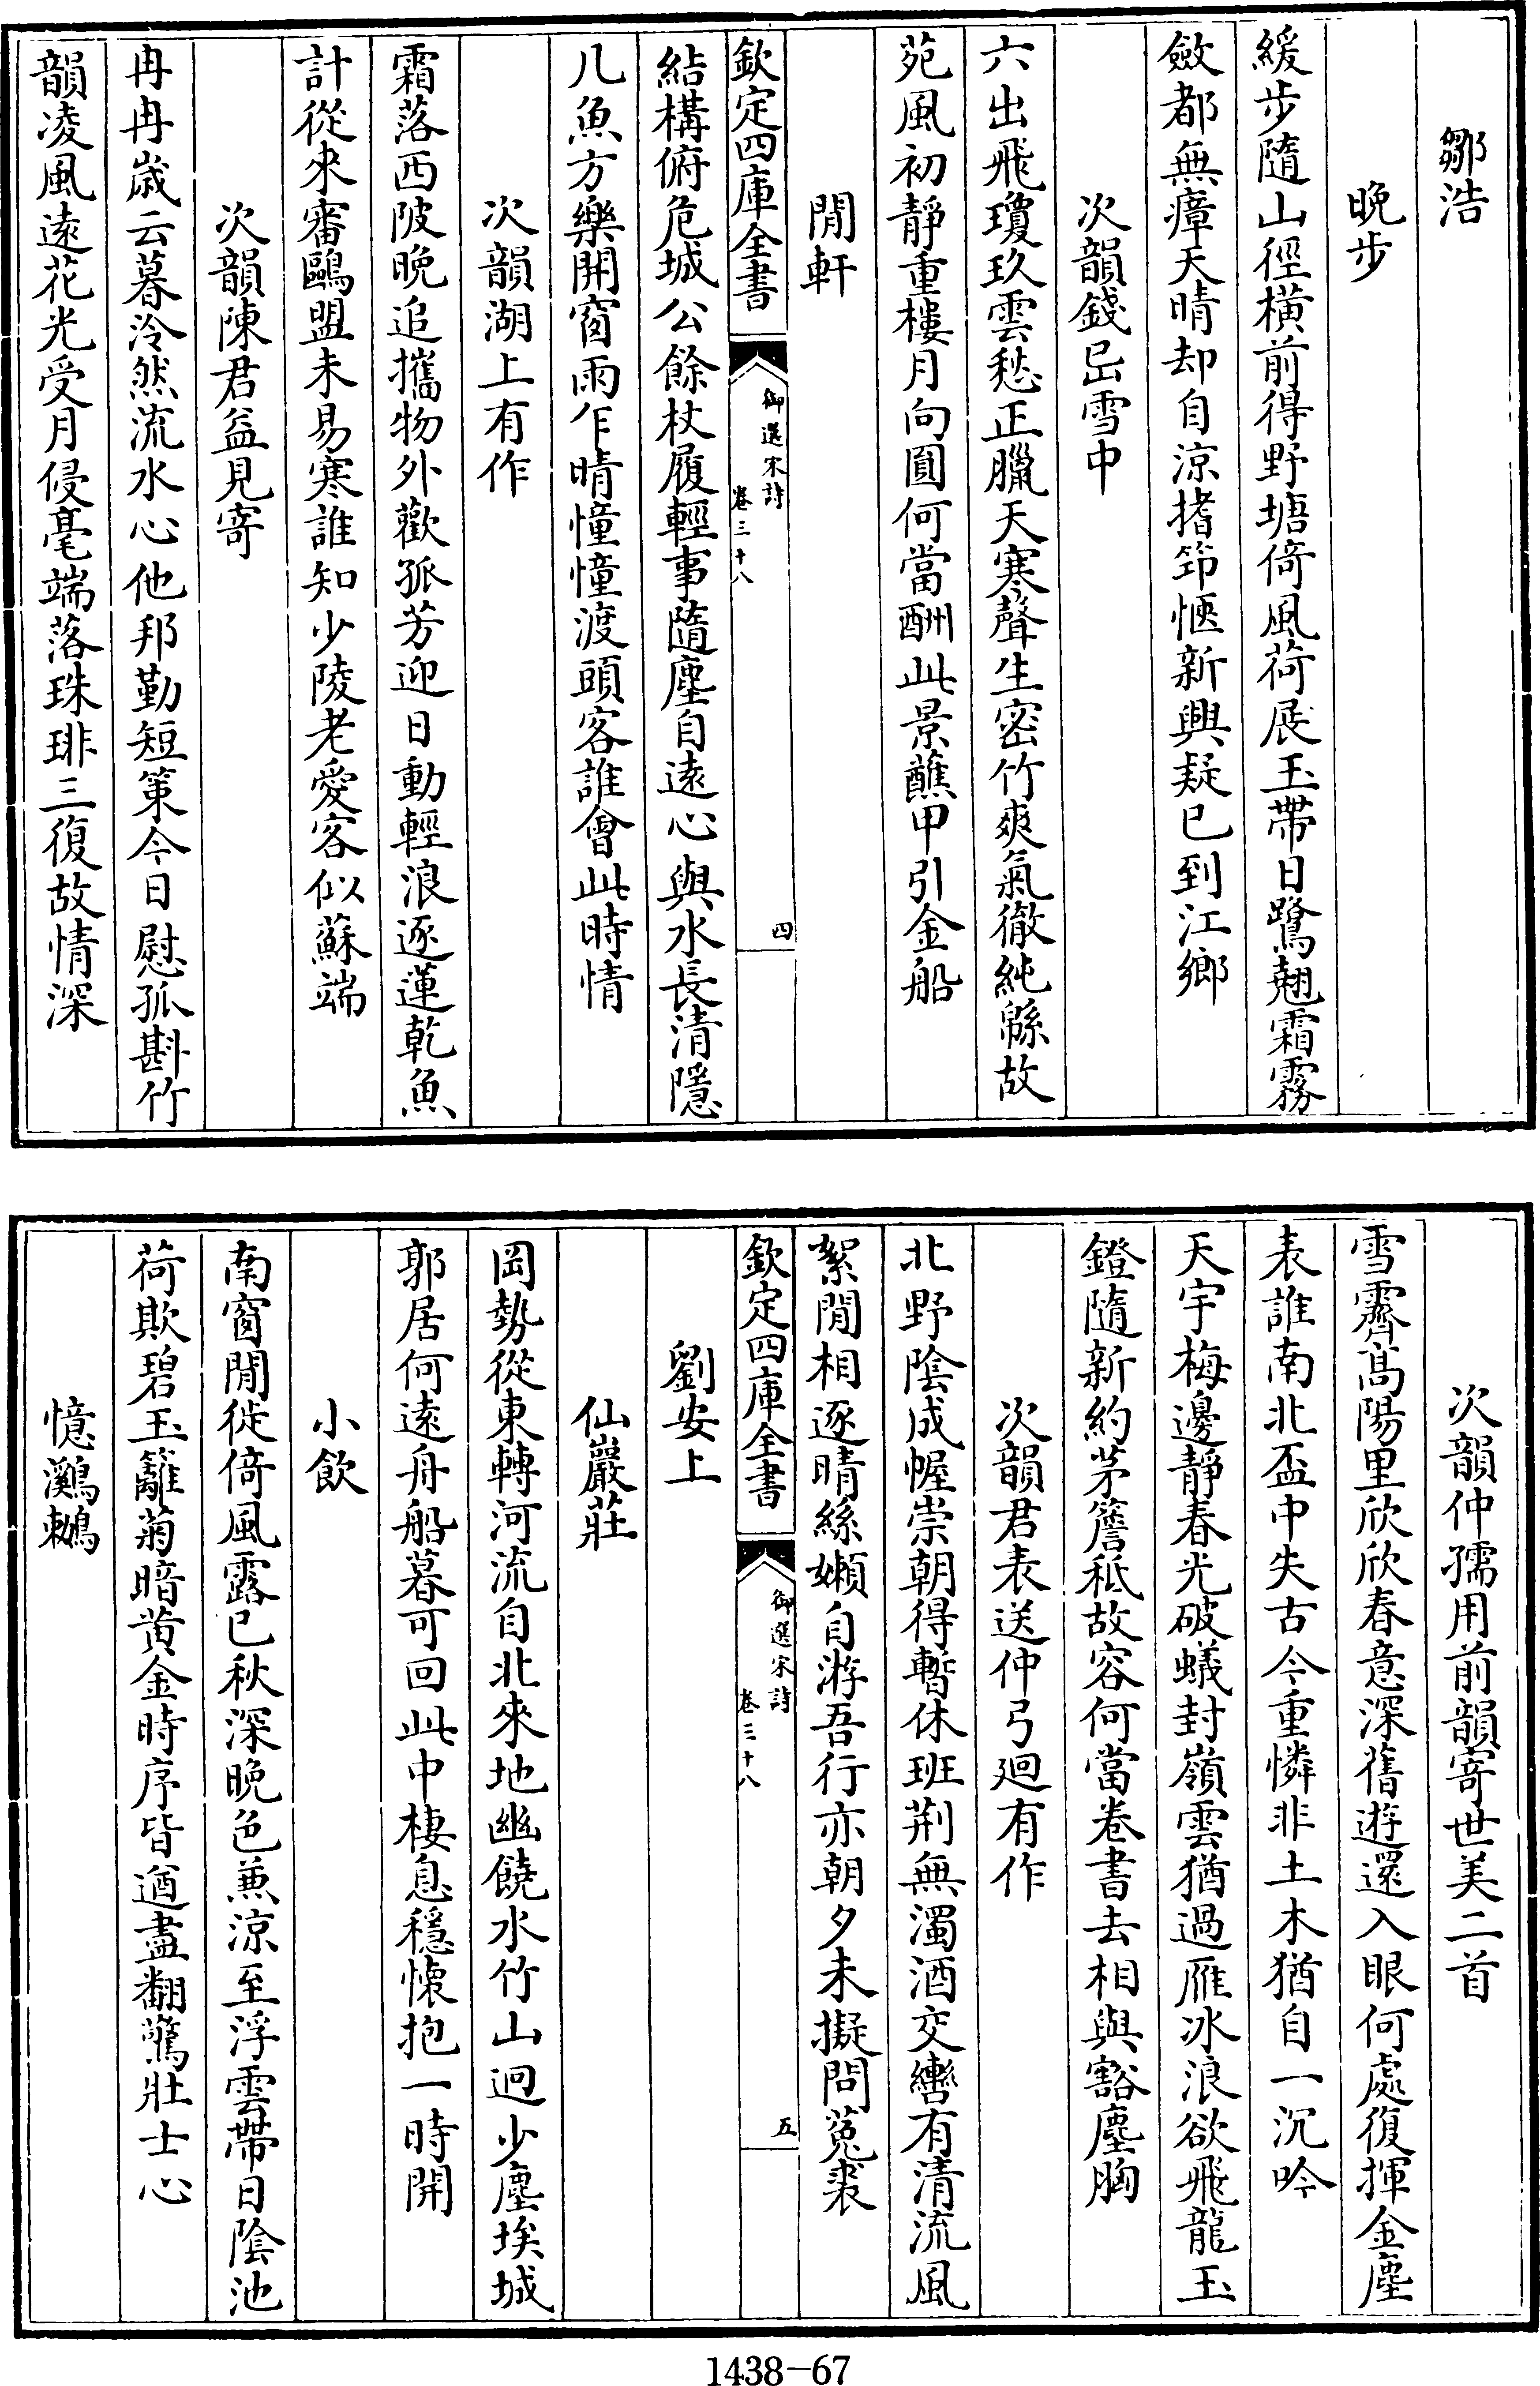 鄒浩
晚步
緩步隨山徑橫前得野塘倚風荷展玉帶日鷺翹霜霧
斂都無瘴天晴却自涼搘笻愜新興疑已到江鄉
次韻錢岊雪中
六出飛瓊玖雲愁正臘天寒聲生密竹爽氣徹純緜故
苑風初靜重樓月向圓何當酬此景蘸甲引金船
閒軒
欽定四庫全書
御選宋詩
卷三十八
四
結構俯危城公餘杖履輕事隨塵自遠心與水長清隱
几魚方樂開窗雨乍晴憧憧渡頭客誰會此時情
次韻湖上有作
霜落西陂晚追攜物外歡孤芳迎日動輕浪逐蓮乾魚
計從來審鷗盟未易寒誰知少陵老愛客似蘇端
次韻陳君益見寄
冉冉歲云暮泠然流水心他邦勤短策今日慰孤斟竹
韻凌風遠花光受月侵毫端落珠琲三復故情深
次韻仲孺用前韻寄世美二首
雪霽高陽里欣欣春意深舊遊還入眼何處復揮金塵
表誰南北盃中失古今重憐非土木猶自一沉吟
天宇梅邊靜春光破蟻封嶺雲猶過雁冰浪欲飛龍玉
鐙隨新約茅簷秪故容何當卷書去相與豁塵胸
次韻君表送仲弓迴有作
北野陰成幄崇朝得暫休班荆無濁酒交轡有清流風
絮閒相逐晴絲嬾自游吾行亦朝夕未擬問菟裘
欽定四庫全書
御選宋詩
卷三十八
五
劉安上
仙巖莊
岡勢從東轉河流自北來地幽饒水竹山迥少塵埃城
郭居何遠舟船暮可回此中棲息穩懷抱一時開
小飲
南窗閒徙倚風露已秋深晚色兼涼至浮雲帶日陰池
荷欺碧玉籬菊暗黄金時序皆遒盡翻驚壯士心
憶鸂鶒
1438-67